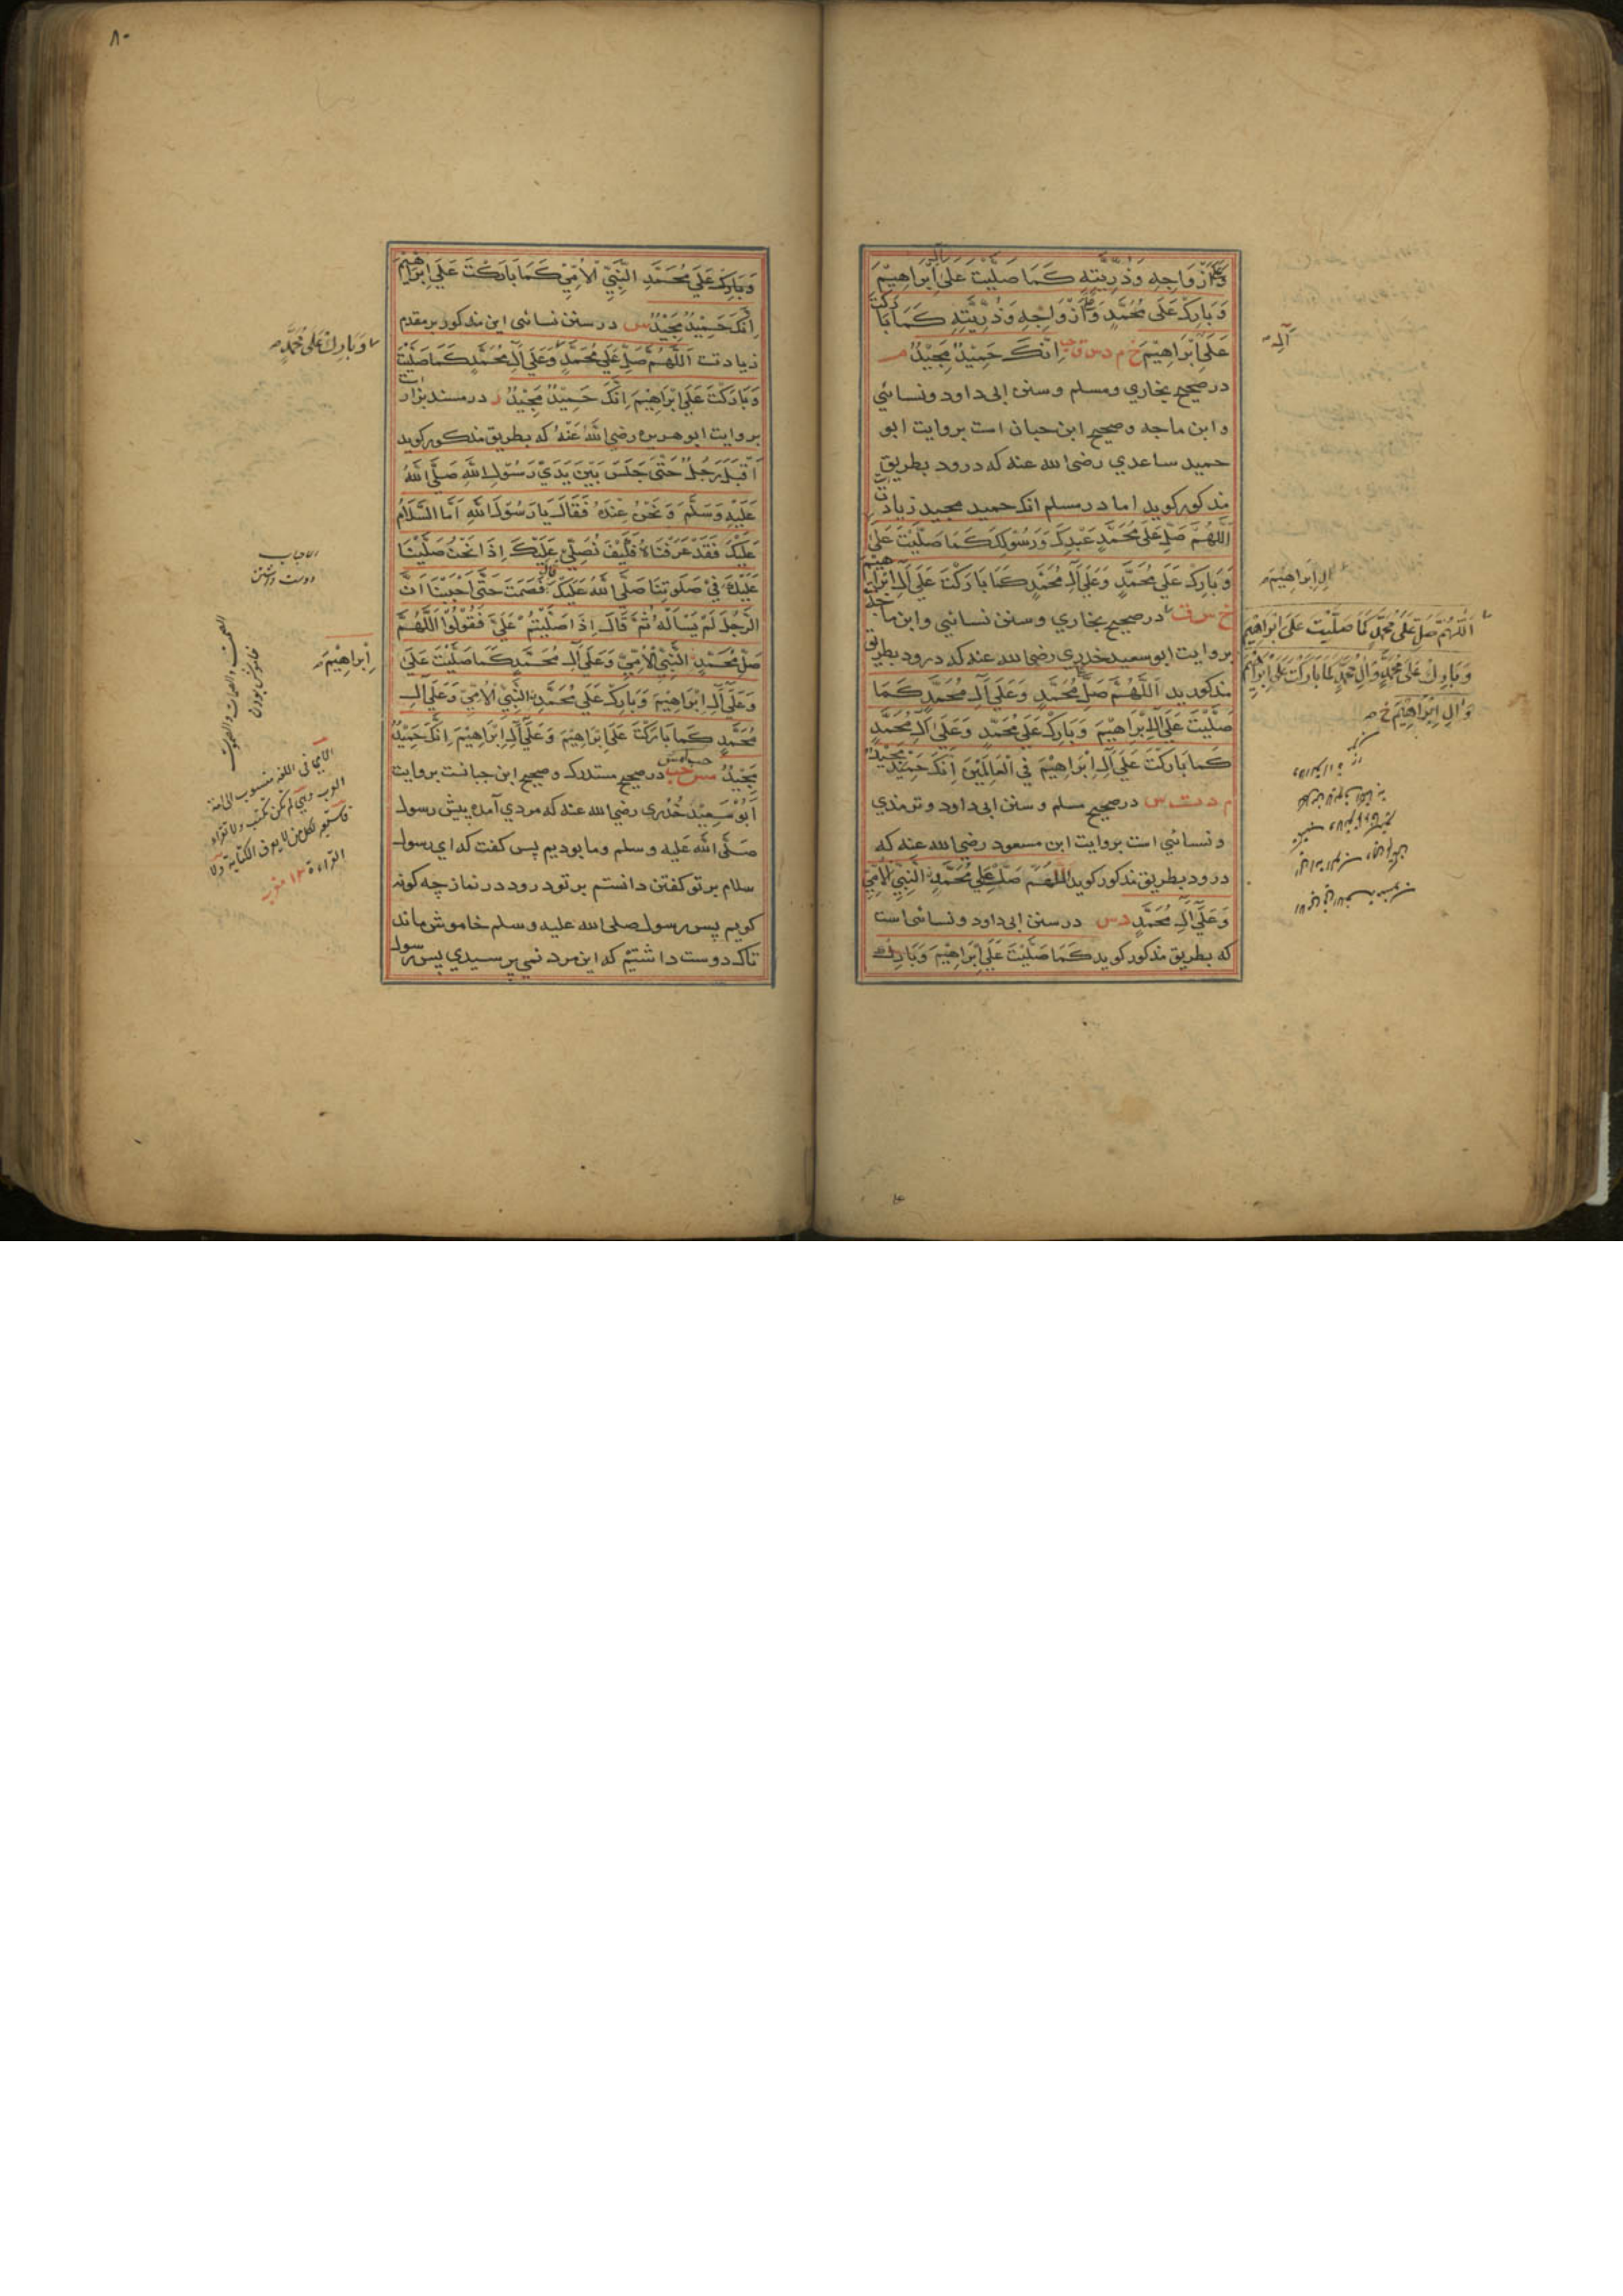 وَعَلَى أَزْوَاجِهِ وَذُرِّيَّتِهِ كَمَا صَلَّيْتَ عَلَى آلِ إِبْرَاهِيْمَ
وَبَارِكْ عَلَى مُحَمَّدٍ وَعَلَى أَزْوَاجِهِ وَذُرِّيَّتِهِ كَمَا بَارَكْتَ
عَلَى إِبْرَاهِيْمَ خ م د س ق إِنَّكَ حَمِيْدٌ مَجِيْدٌ م
در صحیح بخاري ومسلم وسنن ابی داود ونسائي
وابن ماجه وصحیح ابن حبان است بروایت ابو
حمید ساعدي رضی الله عنه که درود بطریق
مذکور کوید اما در مسلم انك حمید مجید زیادت
اَللّٰهُمَّ صَلِّ عَلَى مُحَمَّدٍ عَبْدِكَ وَرَسُوْلِكَ كَمَا صَلَّيْتَ عَلَى
وَبَارِكْ عَلَى مُحَمَّدٍ وَعَلَى آلِ مُحَمَّدٍ كَمَا بَارَكْتَ عَلَى آلِ اِبْرَاهِيْمَ
خ س ق در صحیح بخاري وسنن نسائي وابن ماجه
بروایت ابو سعید خدري رضی الله عنه که درود بطریق
مذکور اَللّٰهُمَّ صَلِّ عَلَى مُحَمَّدٍ وَعَلَى آلِ مُحَمَّدٍ كَمَا
صَلَّيْتَ عَلَى آلِ اِبْرَاهِيْمَ وَبَارِكْ عَلَى مُحَمَّدٍ وَعَلَى آلِ مُحَمَّدٍ
كَمَا بَارَكْتَ عَلَى آلِ اِبْرَاهِيْمَ فِي الْعَالَمِيْنَ اِنَّكَ حَمِيْدٌ مَجِيْدٌ
م د ت س در صحیح مسلم وسنن ابی داود وترمذي
ونسائي است بروایت ابن مسعود رضی الله عنه که
درود بطریق مذکور کوید اللّٰهُمَّ صَلِّ عَلَى مُحَمَّدٍ النَّبِيِّ الْاُمِّيِّ
وَعَلَى آلِ مُحَمَّدٍ د س در سنن ابی داود ونسائی است
که بطریق مذکور کوید كَمَا صَلَّيْتَ عَلَى اِبْرَاهِيْمَ وَبَارِكْ
آلِهِ
اٰلِ اِبْرَاهِيْمَ
اَللّٰهُمَّ صَلِّ عَلَى مُحَمَّدٍ كَمَا صَلَّيْتَ عَلَى اِبْرَاهِيْمَ
وَبَارِكْ عَلَى مُحَمَّدٍ وَاٰلِ مُحَمَّدٍ كَمَا بَارَكْتَ عَلَى اِبْرَاهِيْمَ
وَاٰلِ اِبْرَاهِيْمَ خ
٨٠
وَبَارِكْ عَلَى مُحَمَّدِ النَّبِيِّ الْاُمِّيِّ كَمَا بَارَكْتَ عَلَى اِبْرَاهِيْمَ
اِنَّكَ حَمِيْدٌ مَجِيْدٌ س در سنن نسائی این مذکور بر مقدم
زیادت اَللّٰهُمَّ صَلِّ عَلَى مُحَمَّدٍ وَعَلَى آلِ مُحَمَّدٍ كَمَا صَلَّيْتَ
وَبَارَكْتَ عَلَى اِبْرَاهِيْمَ اِنَّكَ حَمِيْدٌ مَجِيْدٌ ر در مسند بزار است
بروایت ابو هریره رضی اللهُ عَنْهُ که بطریق مذکور کوید
اَقْبَلَ رَجُلٌ حَتّٰى جَلَسَ بَيْنَ يَدَيْ رَسُوْلِ اللّٰهِ صَلَّى اللّٰهُ
عَلَيْهِ وَسَلَّمَ وَنَحْنُ عِنْدَهُ فَقَالَ يَا رَسُوْلَ اللّٰهِ اَمَّا السَّلَامُ
عَلَيْكَ فَقَدْ عَرَفْنَاهُ فَكَيْفَ نُصَلِّيْ عَلَيْكَ اِذَا نَحْنُ صَلَّيْنَا
عَلَيْكَ فِيْ صَلٰوتِنَا صَلَّى اللّٰهُ عَلَيْكَ قَالَ فَصَمَتَ حَتّٰى اَحْبَبْنَا اَنَّ
الرَّجُلَ لَمْ يَسْاَلْهُ ثُمَّ قَالَ اِذَا صَلَّيْتُمْ عَلَيَّ فَقُوْلُوْا اَللّٰهُمَّ
صَلِّ مُحَمَّدٍ النَّبِيِّ الْاُمِّيِّ وَعَلَى آلِ مُحَمَّدٍ كَمَا صَلَّيْتَ عَلَى
وَعَلَى آلِ اِبْرَاهِيْمَ وَبَارِكْ عَلَى مُحَمَّدٍ النَّبِيِّ الْاُمِّيِّ وَعَلَى آلِ
مُحَمَّدٍ كَمَا بَارَكْتَ عَلَى اِبْرَاهِيْمَ وَعَلَى آلِ اِبْرَاهِيْمَ اِنَّكَ حَمِيْدٌ
مَجِيْدٌ مس حب در صحیح مستدرك وصحیح ابن حبانست بروایت
اَبُوْ سَعِيْدٍ خُدْرِي رضی الله عنه که مردي آمد پیش رسول
صَلَّى اللّٰه عَلَيه وسلم وما بودیم پس کفت که اي رسول
سلام بر تو کفتن دانستم بر تو درود در نماز چه کونه
کویم پس رسول صلی الله علیه وسلم خاموش ماند
تاکه دوست داشتیم که این مرد نمی پرسیدي پس رسول
وَبَارِكْ عَلَى مُحَمَّدٍ
الاحباب
دوست داشتن
خاموش بودن
اِبْرَاهِيْمَ